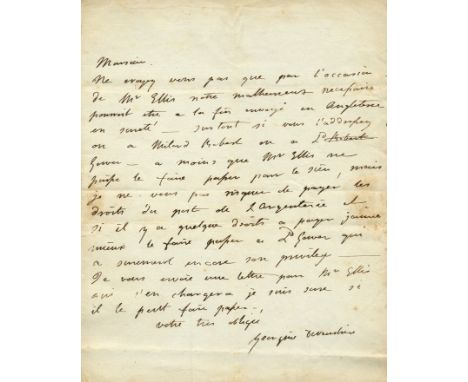 Monsieur.
Ne croyez vous pas que par l'occasion
de Mr Ellis notre malheureux necessaire
pourroit etre a la fin envoyé en Angleterre
en sureté — surtout si vous l'addressez
ou a Milord Robert ou a Ld
Gower — a moins que Mr Ellis ne
puisse le faire passer pour le sien, mais
je ne veux pas risquer de payer les
droits du port de l'argenterie et
si il y a quelque droits a payer j'aime
mieux le faire passer a Ld Gower qui
a surement encore son privilege —
Je vous envoie une lettre pour Mr Ellis
qui s'en chargera je suis sure si
il le peut faire passer.
votre très obligée
Georgine